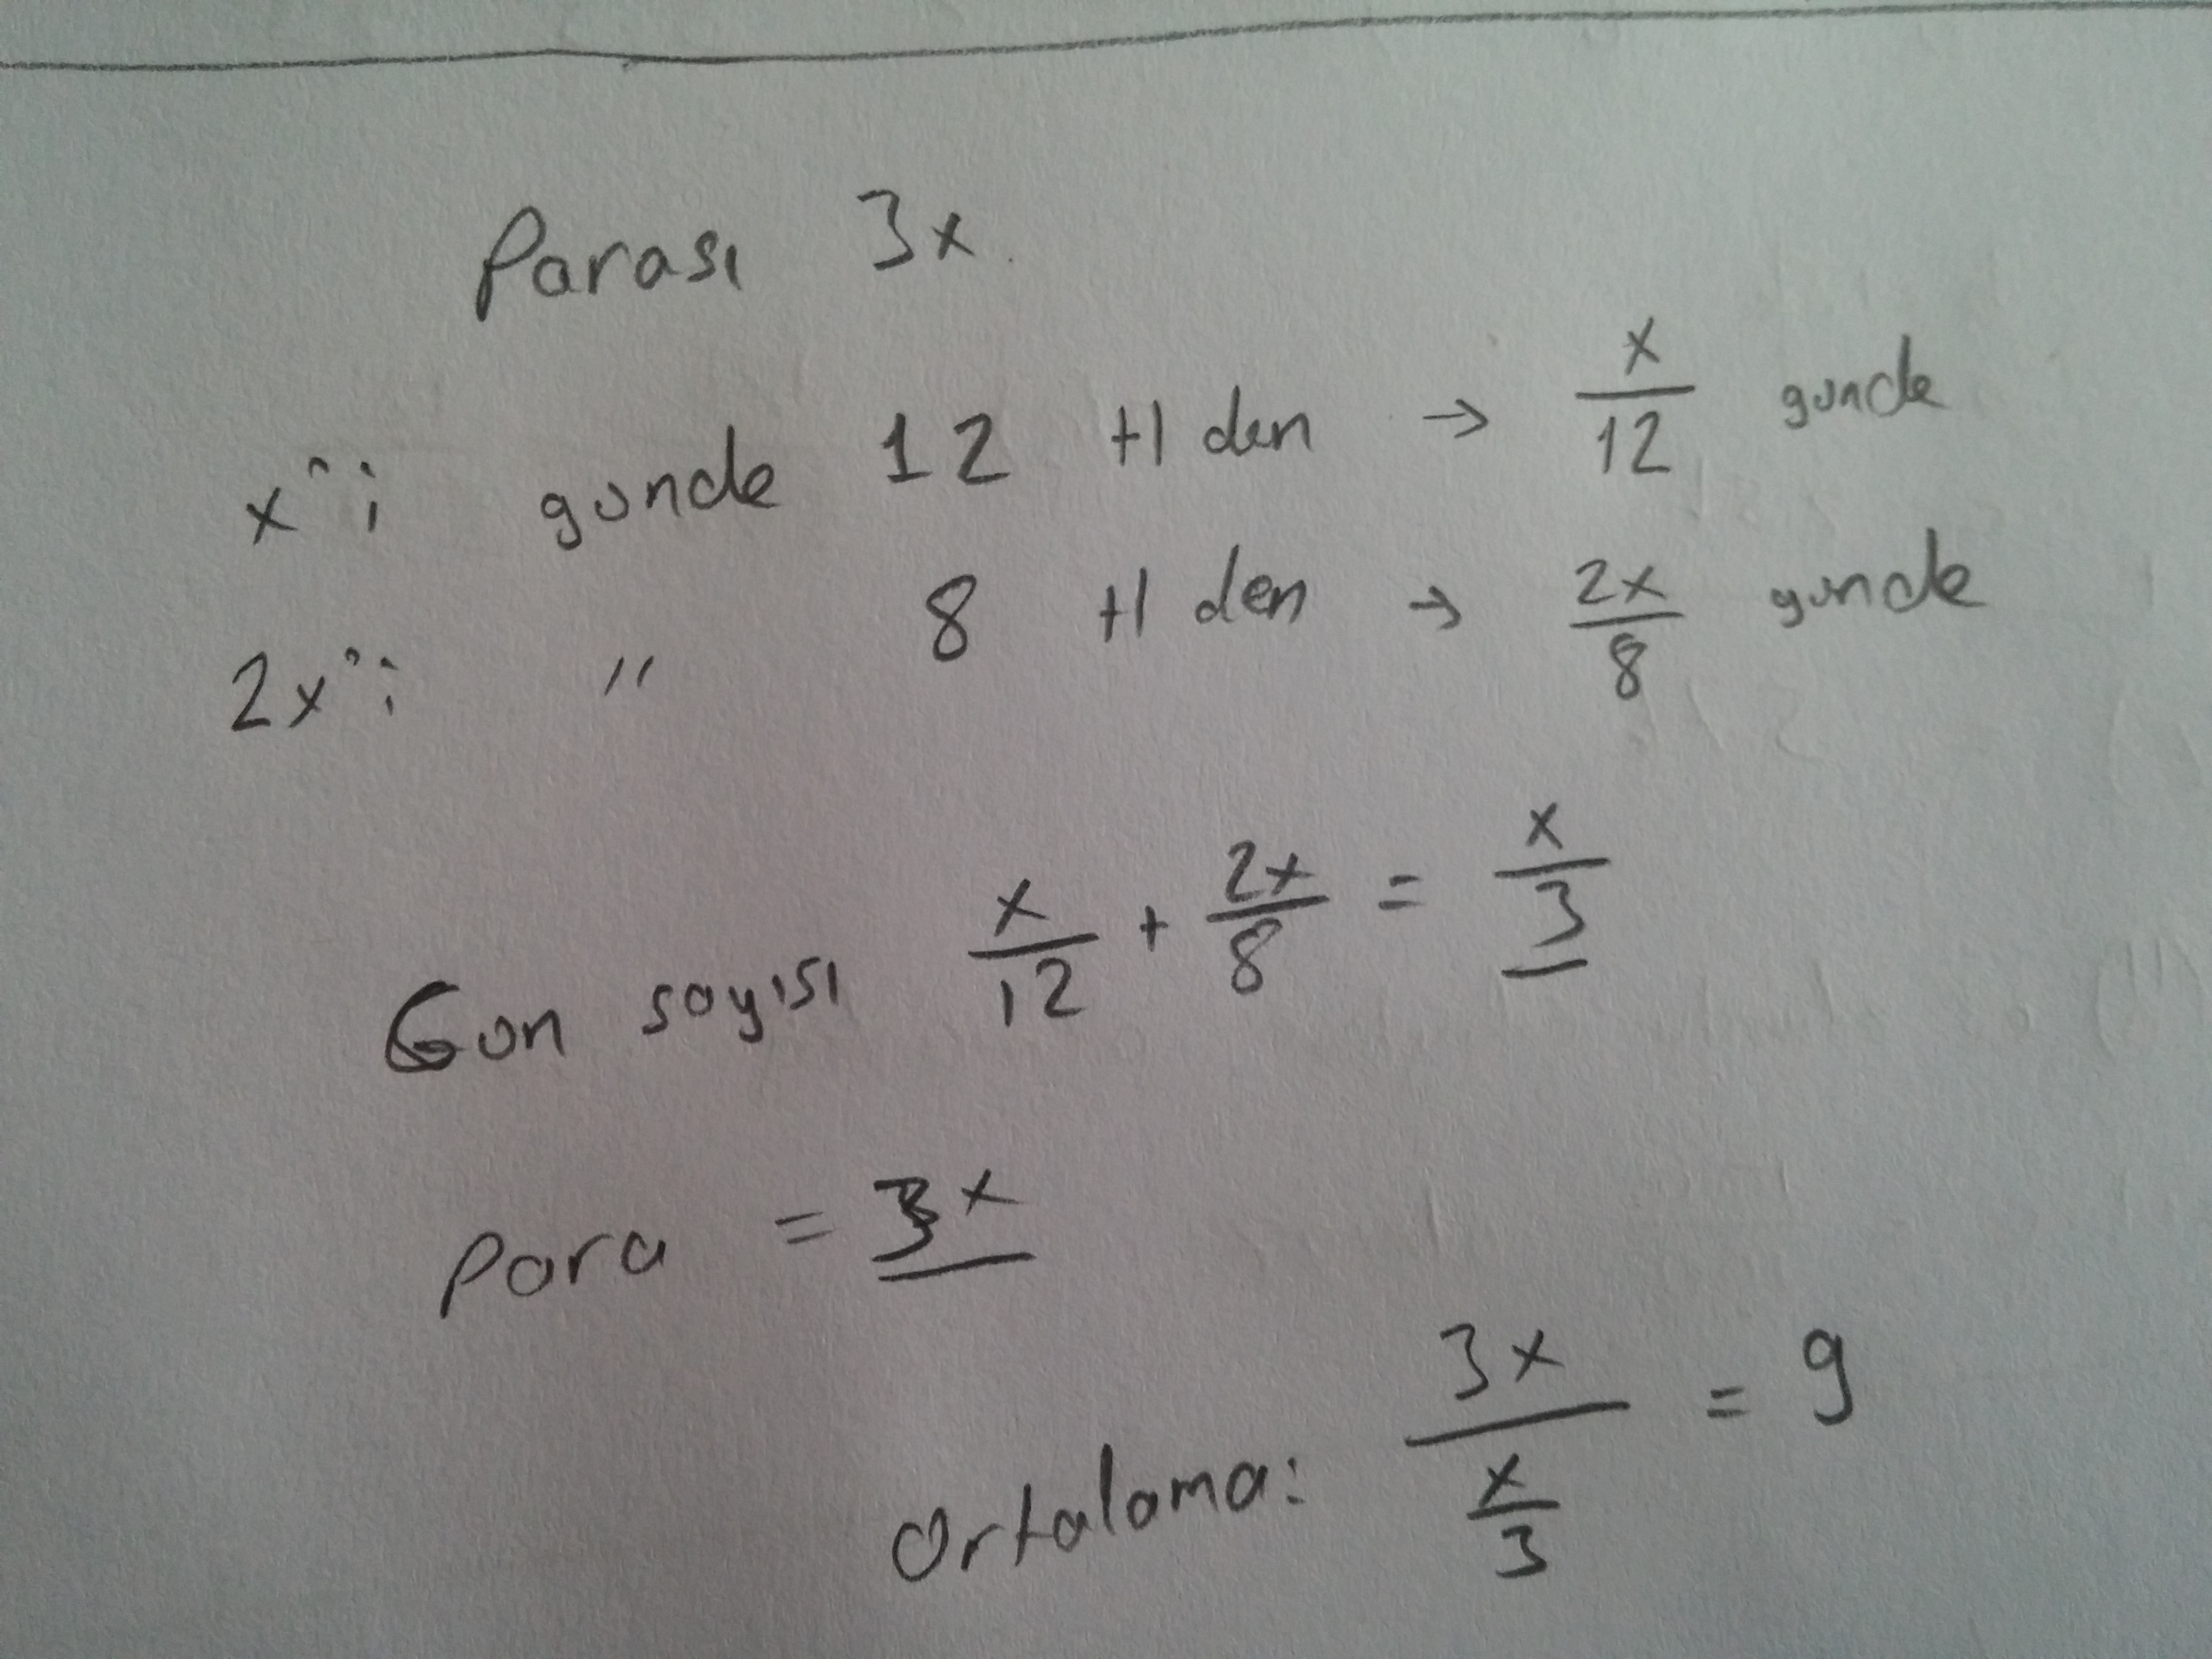 Parası 3x
x'i günde 12 tl den → x/12 günde
2x'i " 8 tl den → 2x/8 günde
Gün sayısı x/12 + 2x/8 = x/3
Para = 3x
Ortalama: 3x/(x/3) = 9